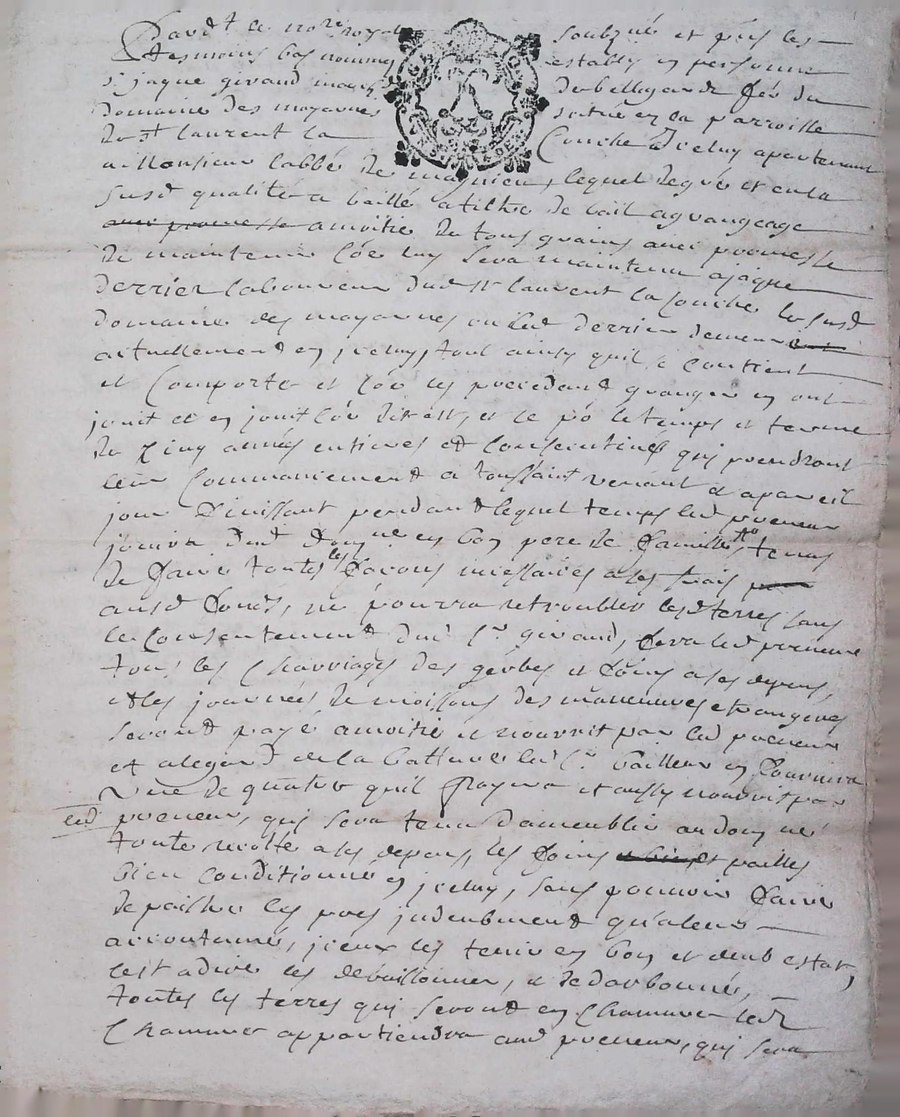 Pardt le nore royal soubzné et pñs les
tesmoins bas nommés estably en personne
sr jaque giraud de bellegarde fer du
domaine des moyannes scitué en la parroisse
de st laurent la Conche d'iceluy apartenant
a Monsieur labbé de magnieu, lequel de gré et en la
susd qualité a baillé a tiltre de bail a grangeage
avec promesse a moitié de tous grains avec promesse
de maintenir Côe luy sera maintenu a jaque
derrier laboureur dud st laurent la Conche le susd
domaine des moyannes ou led derrier demeure
actuellement en jceluy, tout ainsy quil se contient
et Comporte et Côe les precedand granger en ont
jouit et en jouit et ce po le temps et terme
de Cinq années entieres et Consecutives qui prendront
leur Commancement a toussaint venant et a pareil
jour finissant pendant lequel temps led preneur
jouira dud domne en bon pere de famille, tenus
de faire toutes les façons necessaires a ses frais
ausd fonds, ne pourra retroubler lesd terres sans
le Consentement dud sr giraud, fera led preneur
tous les Charriages des gerbes et foins a ses depens,
et les journées de moissons des maneuvres etrangeres
seront payé a moitié et nourrit par led preneur
et a legard de la batture led sr bailleur en fournira
une de quatre quil payra et aussy nourrit par
led preneur, qui sera tenu d'ameublir aud domné
toute recolte a ses depens, les foins et pailles
bien conditionné en jceluy, sans pouvoir faire
depaistre les prez
accoutumé, jceux les tenir en bon et deub estat,
cest a dire les et
toutes les terres qui seront en Chanvre led
Chanvre appartiendra aud preneur, qui sera